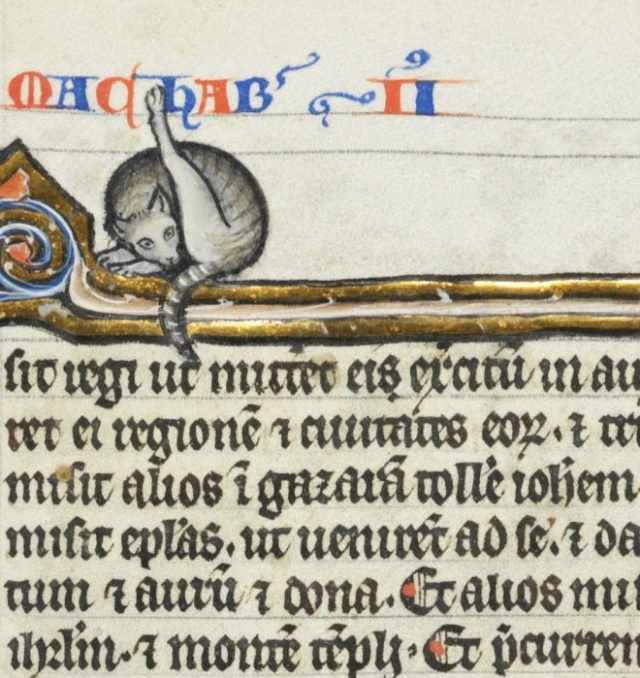 MACHAB' II
sit regi ut mittet eis exercitū in au
ret ei regionē ⁊ ciuitates eoꝝ. ⁊ tri
misit alios ī gazarā tollē̓ iohem
misit ep̄las. ut ueniret̄ ad se. ⁊ da
tum ⁊ aurū ⁊ dona. Et alios mi
ihrl̓m. ⁊ montē tēpli. Et p̄curren